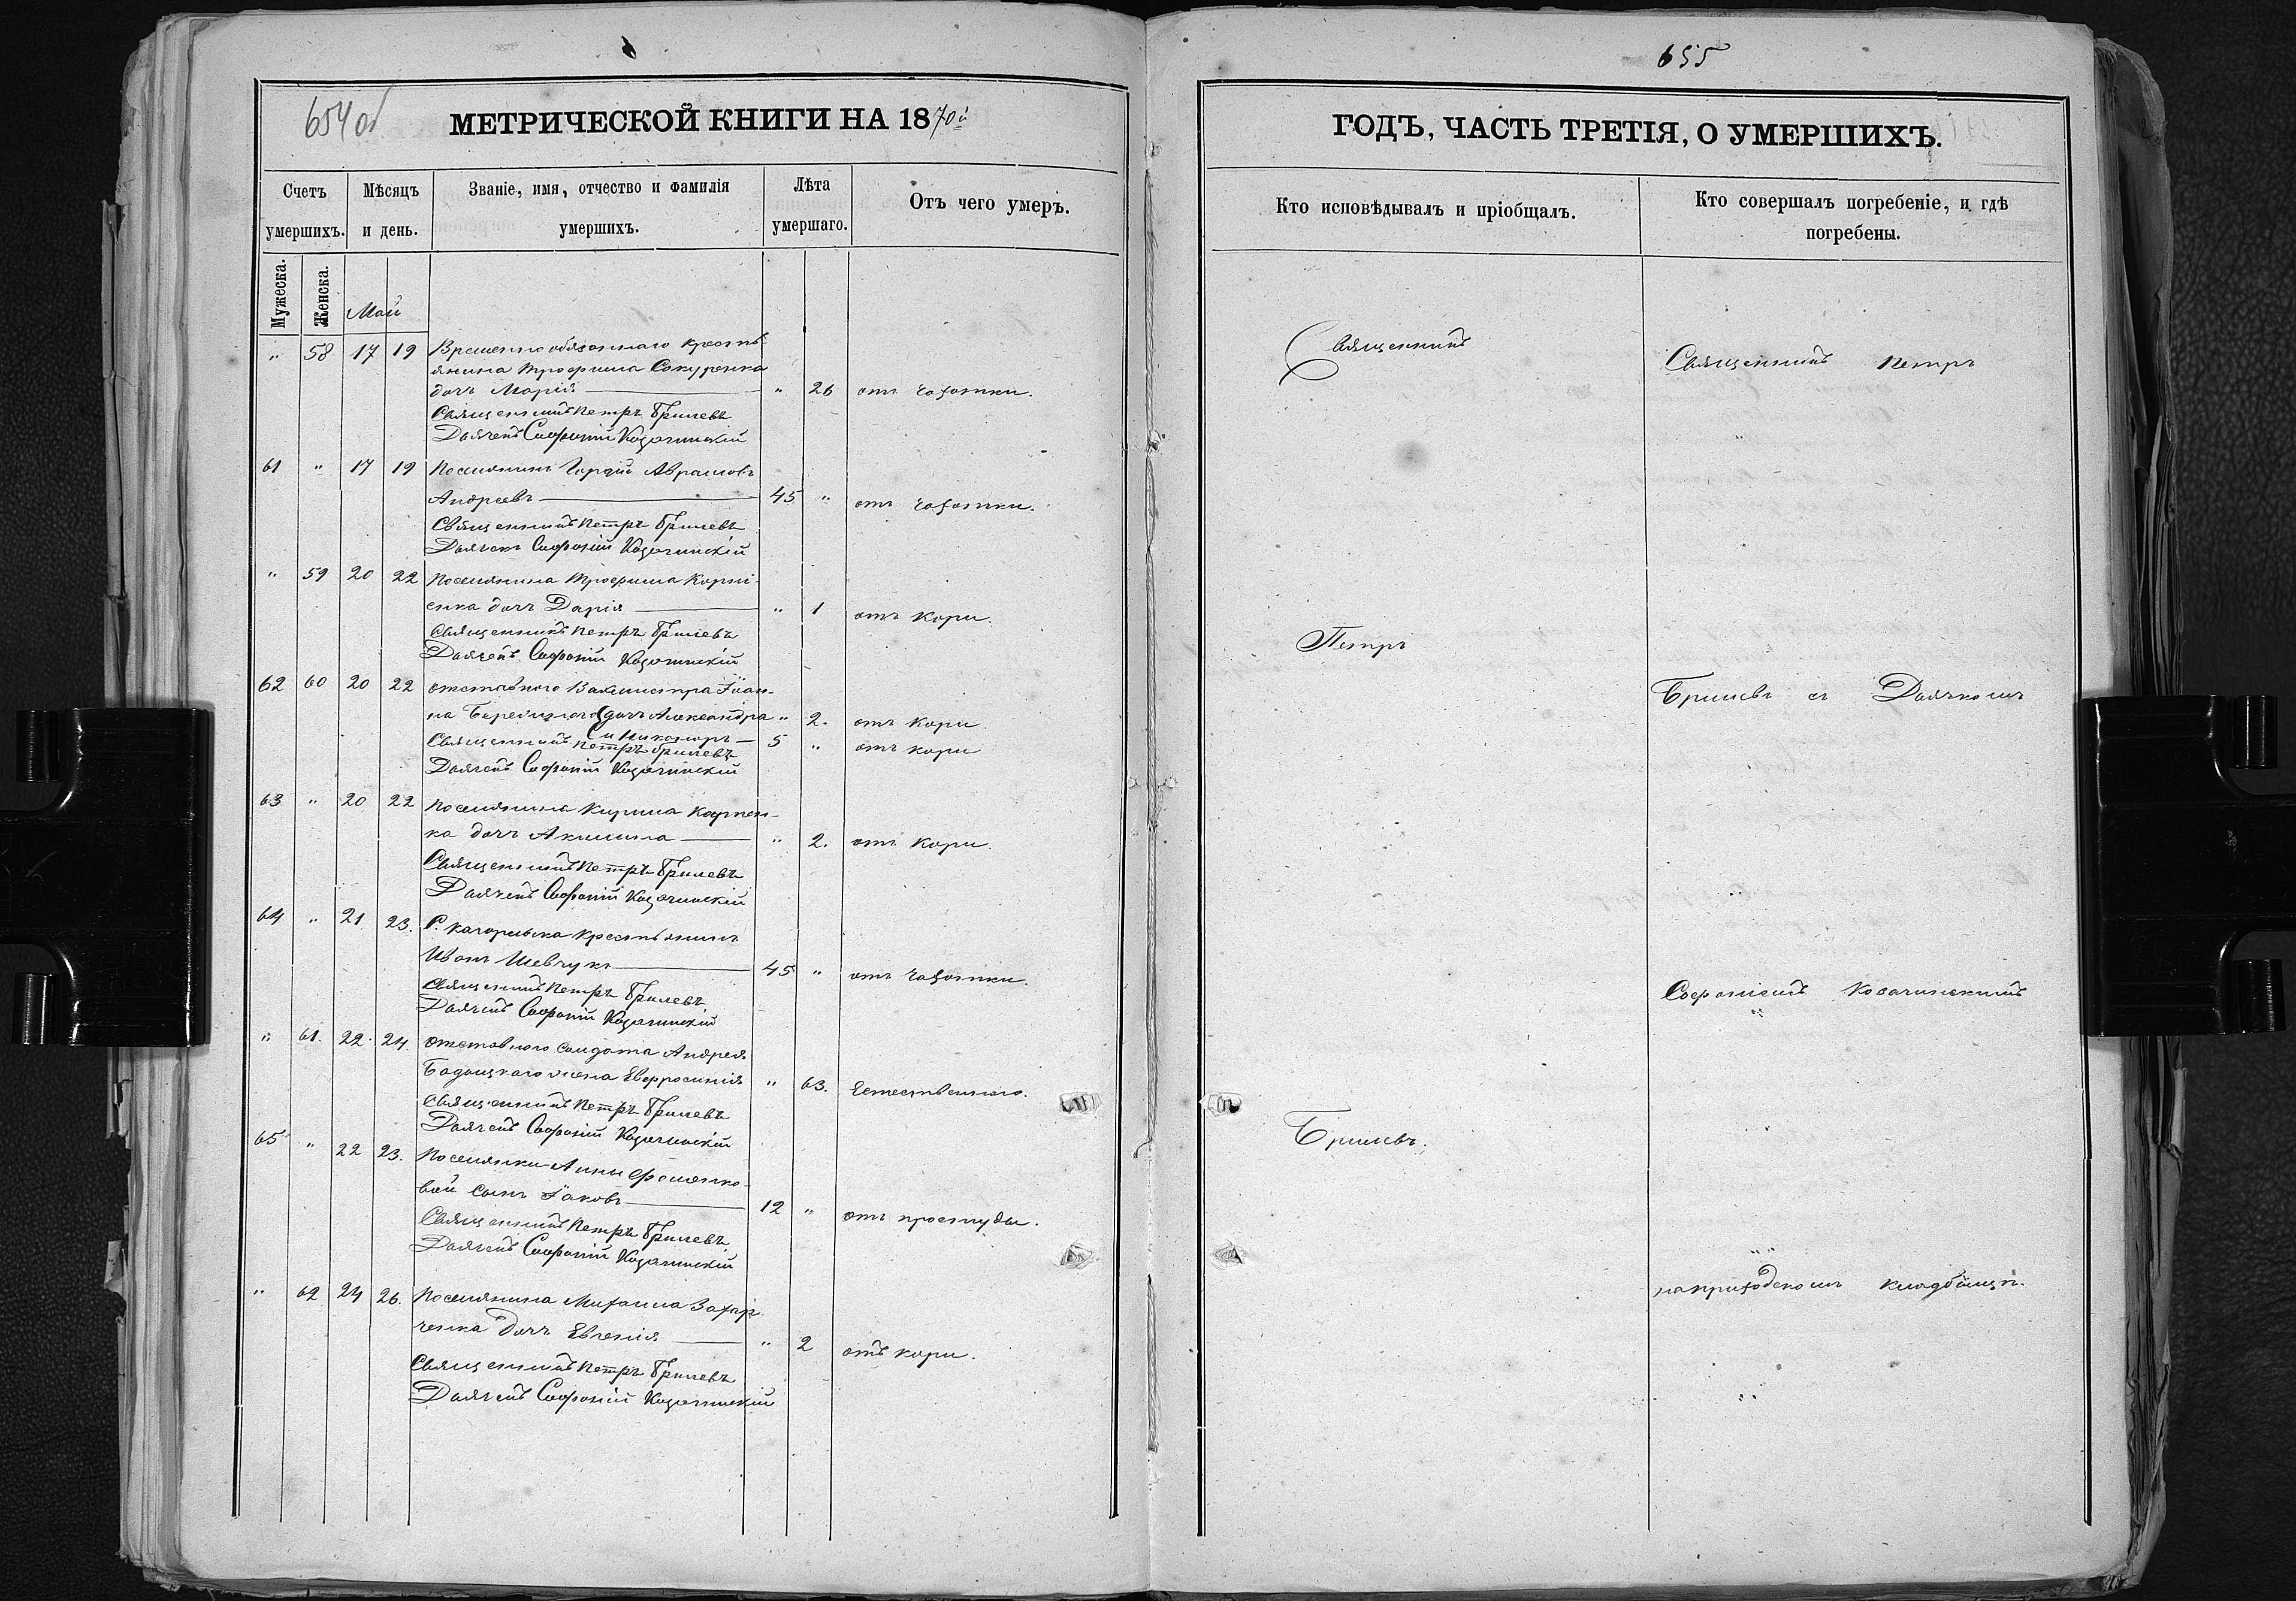 654об
МЕТРИЧЕСКОЙ КНИГИ НА 1870й
Счетъ умершихъ.
Мѣсяцъ и день.
Званіе, имя, отчество и фамилія умершихъ.
Лѣта умершаго.
Отъ чего умеръ.
Мужеска.
Женска.
Май
" 58 17 19 Временно обязаннаго кресть-
янина Трофима Сокуренка
дочь Марія " 26 отъ чахотки.
Священникъ Петръ Бршевъ
Дьячекъ Софроній Козачинскій
61 " 17 19 Поселянинъ Гордій Аврамовъ
Андреевъ 45 " отъ чахотки.
Священникъ Петръ
Дьячекъ Софроній Козачинскій
" 59 20 22 Поселянина Трофима Корні-
енка дочь Дарія " 1 отъ кори.
Священникъ Петръ
Дьячекъ Софроній Козачинскій
62 60 20 22 отставнаго Вахмистра Іоан-
на дочь Александра " 2. отъ кори.
и Никаноръ 5 " отъ кори
Священникъ Петръ
Дьячекъ Софроній Козачинскій
63 " 20 22 Поселянина Кирила Карпен-
ка дочь Акилина " 2. отъ кори.
Священникъ Петръ
Дьячекъ Софроній Козачинскій
64 " 21 23. С. крестьянинъ
Иванъ Шевчукъ 45 " отъ чахотки.
Священникъ Петръ
Дьячекъ Софроній Козачинскій
" 61. 22. 24. отставного солдата Андрея
жена Евфросинія " 63. Естественно.
Священникъ Петръ
Дьячекъ Софроній Козачинскій
65 " 22 23. Поселянки Анны Фоменко-
вой сынъ Іаковъ 12 " отъ простуды.
Священникъ Петръ
Дьячекъ Софроній Козачинскій
" 62 24 26. Поселянина Михаила Захар-
ченка дочь Евгенія " 2 отъ кори.
Священникъ Петръ
Дьячекъ Софроній Козачинскій
655
ГОДЪ, ЧАСТЬ ТРЕТІЯ, О УМЕРШИХЪ.
Кто исповѣдывалъ и пріобщалъ.
Кто совершалъ погребеніе, и гдѣ погребены.
Священникъ
Петръ
Священникъ Петръ
съ Дьячкомъ
Софроніемъ Козачинскимъ
на приходскомъ кладбищѣ.